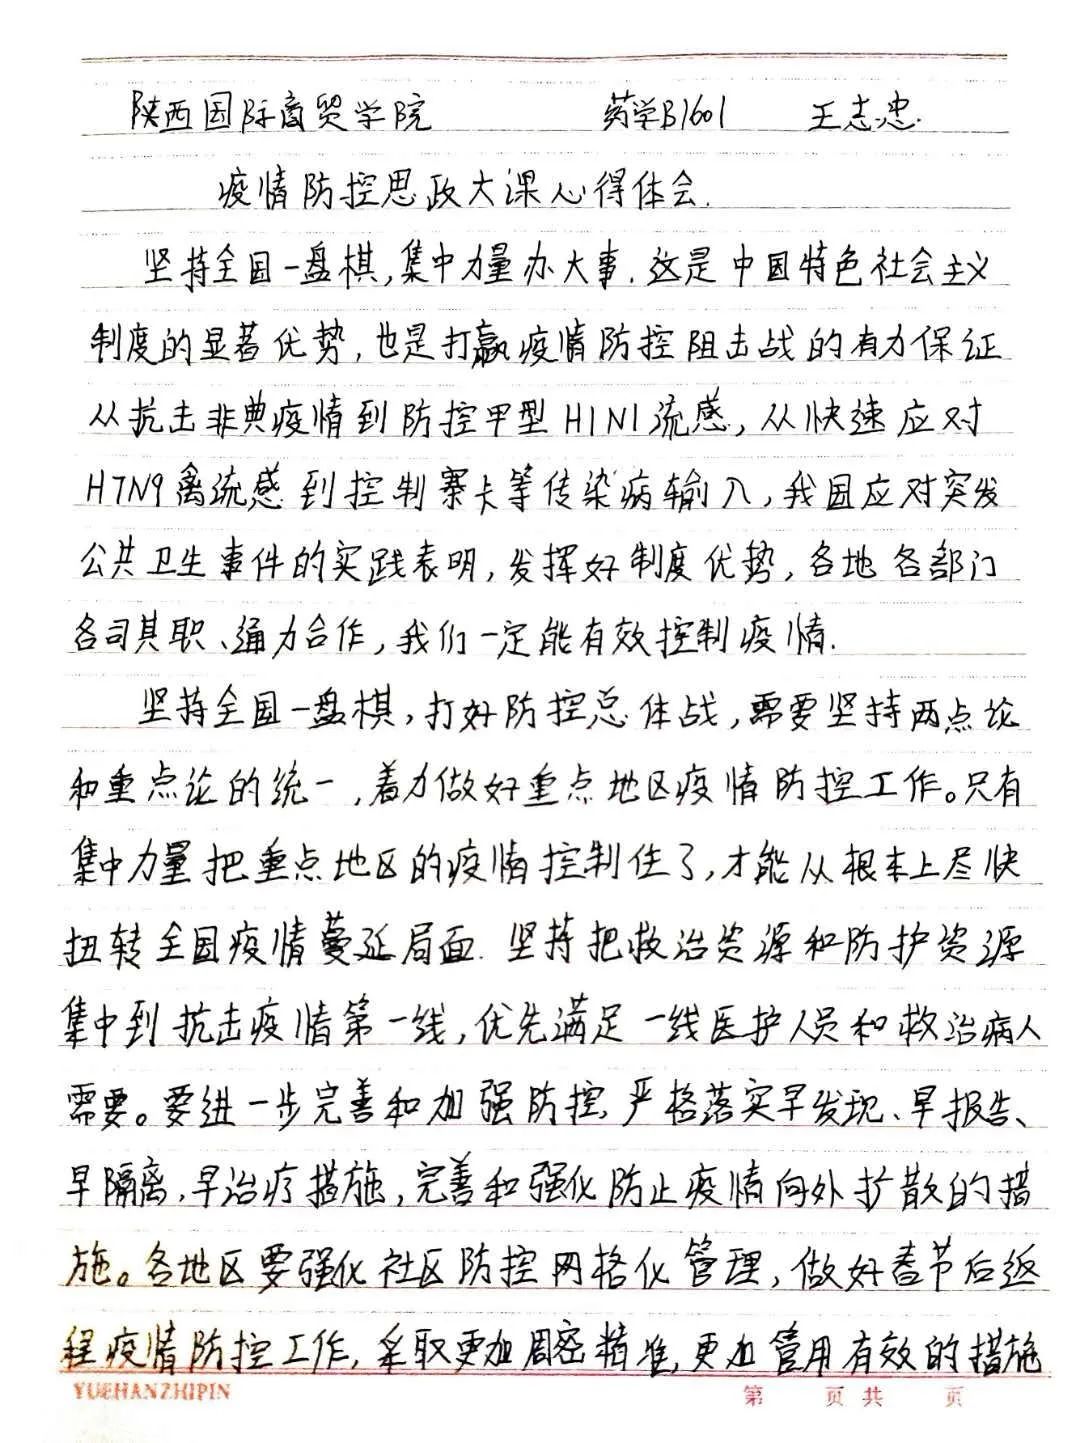 陕西国际商贸学院 药学B1601 王志忠.
疫情防控思政大课心得体会.
坚持全国一盘棋,集中力量办大事.这是中国特色社会主义
制度的显著优势,也是打赢疫情防控阻击战的有力保证
从抗击非典疫情到防控甲型H1N1流感,从快速应对
H7N9禽流感到控制寨卡等传染病输入,我国应对突发
公共卫生事件的实践表明,发挥好制度优势,各地各部门
各司其职、通力合作,我们一定能有效控制疫情.
坚持全国一盘棋,打好防控总体战,需要坚持两点论
和重点论的统一,着力做好重点地区疫情防控工作。只有
集中力量把重点地区的疫情控制住了,才能从根本上尽快
扭转全国疫情蔓延局面.坚持把救治资源和防护资源
集中到抗击疫情第一线,优先满足一线医护人员和救治病人
需要。要进一步完善和加强防控,严格落实早发现、早报告、
早隔离,早治疗措施,完善和强化防止疫情向外扩散的措
施。各地区要强化社区防控网格化管理,做好春节后返
程疫情防控工作,采取更加周密精准,更加管用有效的措施
YUEHANZHIPIN 第 页 共 页